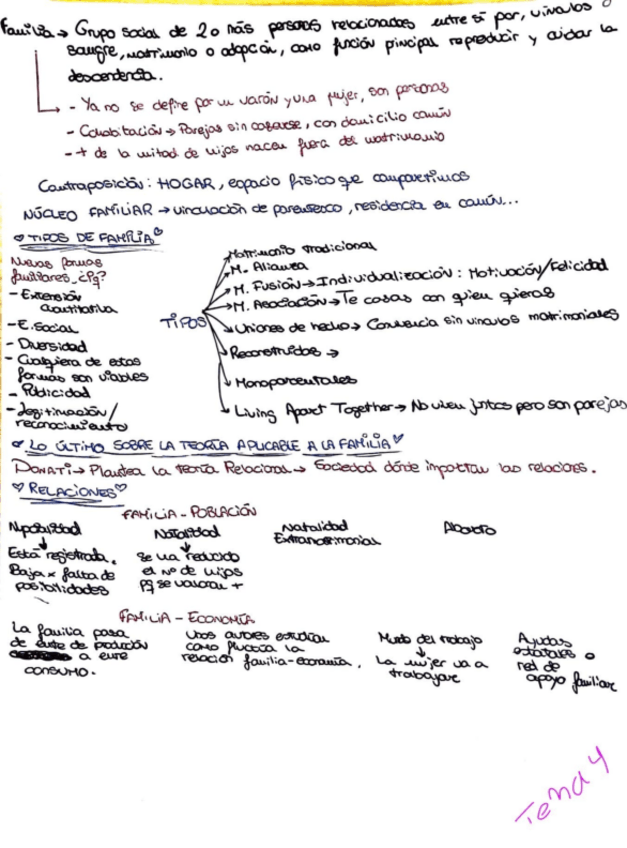 Familia → Grupo social de 2 o más personas relacionadas entre sí por, vínculos o
sangre, matrimonio o adopción, como función principal reproducir y cuidar la
descendencia.
- Ya no se define por un varón y una mujer, son personas
- Cohabitación → Parejas sin casarse, con domicilio común
- + de la mitad de hijos nacen fuera del matrimonio
Contraposición: HOGAR, espacio físico que compartimos
NÚCLEO FAMILIAR → vinculación de parentesco, residencia en común...
♡ TIPOS DE FAMILIA ♡
Nuevas formas
familiares ¿Pq?
- Extensión
cuantitativa
- E. Social
- Diversidad
- Cualquiera de estas
formas son viables
- Publicidad
- Legitimación/
reconocimiento
TIPOS
Matrimonio tradicional
M. Alianza
M. Fusión → Individualización: Motivación/Felicidad
M. Asociación → Te casas con quien quieras
Uniones de hecho → Convivencia sin vínculos matrimoniales
Reconstruidas →
Monoparentales
Living Apart Together → No viven juntos pero son parejas
♡ LO ÚLTIMO SOBRE LA TEORÍA APLICABLE A LA FAMILIA ♡
DONATI → Plantea la teoría Relacional → Sociedad dónde importan las relaciones.
♡ RELACIONES ♡
FAMILIA - POBLACIÓN
Nupcialidad
↓
Está registrada.
Baja x falta de
posibilidades
Natalidad
↓
Se va reducido
el nº de hijos
pq se valoran +
Natalidad
Extramatrimonial
Aborto
FAMILIA - ECONOMÍA
La familia pasa
de ente de producción
a ente
consumo.
Unos autores estudian
como fluctúa la
relación familia-economía.
Mundo del trabajo
↓
La mujer va a
trabajar
Ayudas
estatales o
red de
apoyo familiar
Tema 4